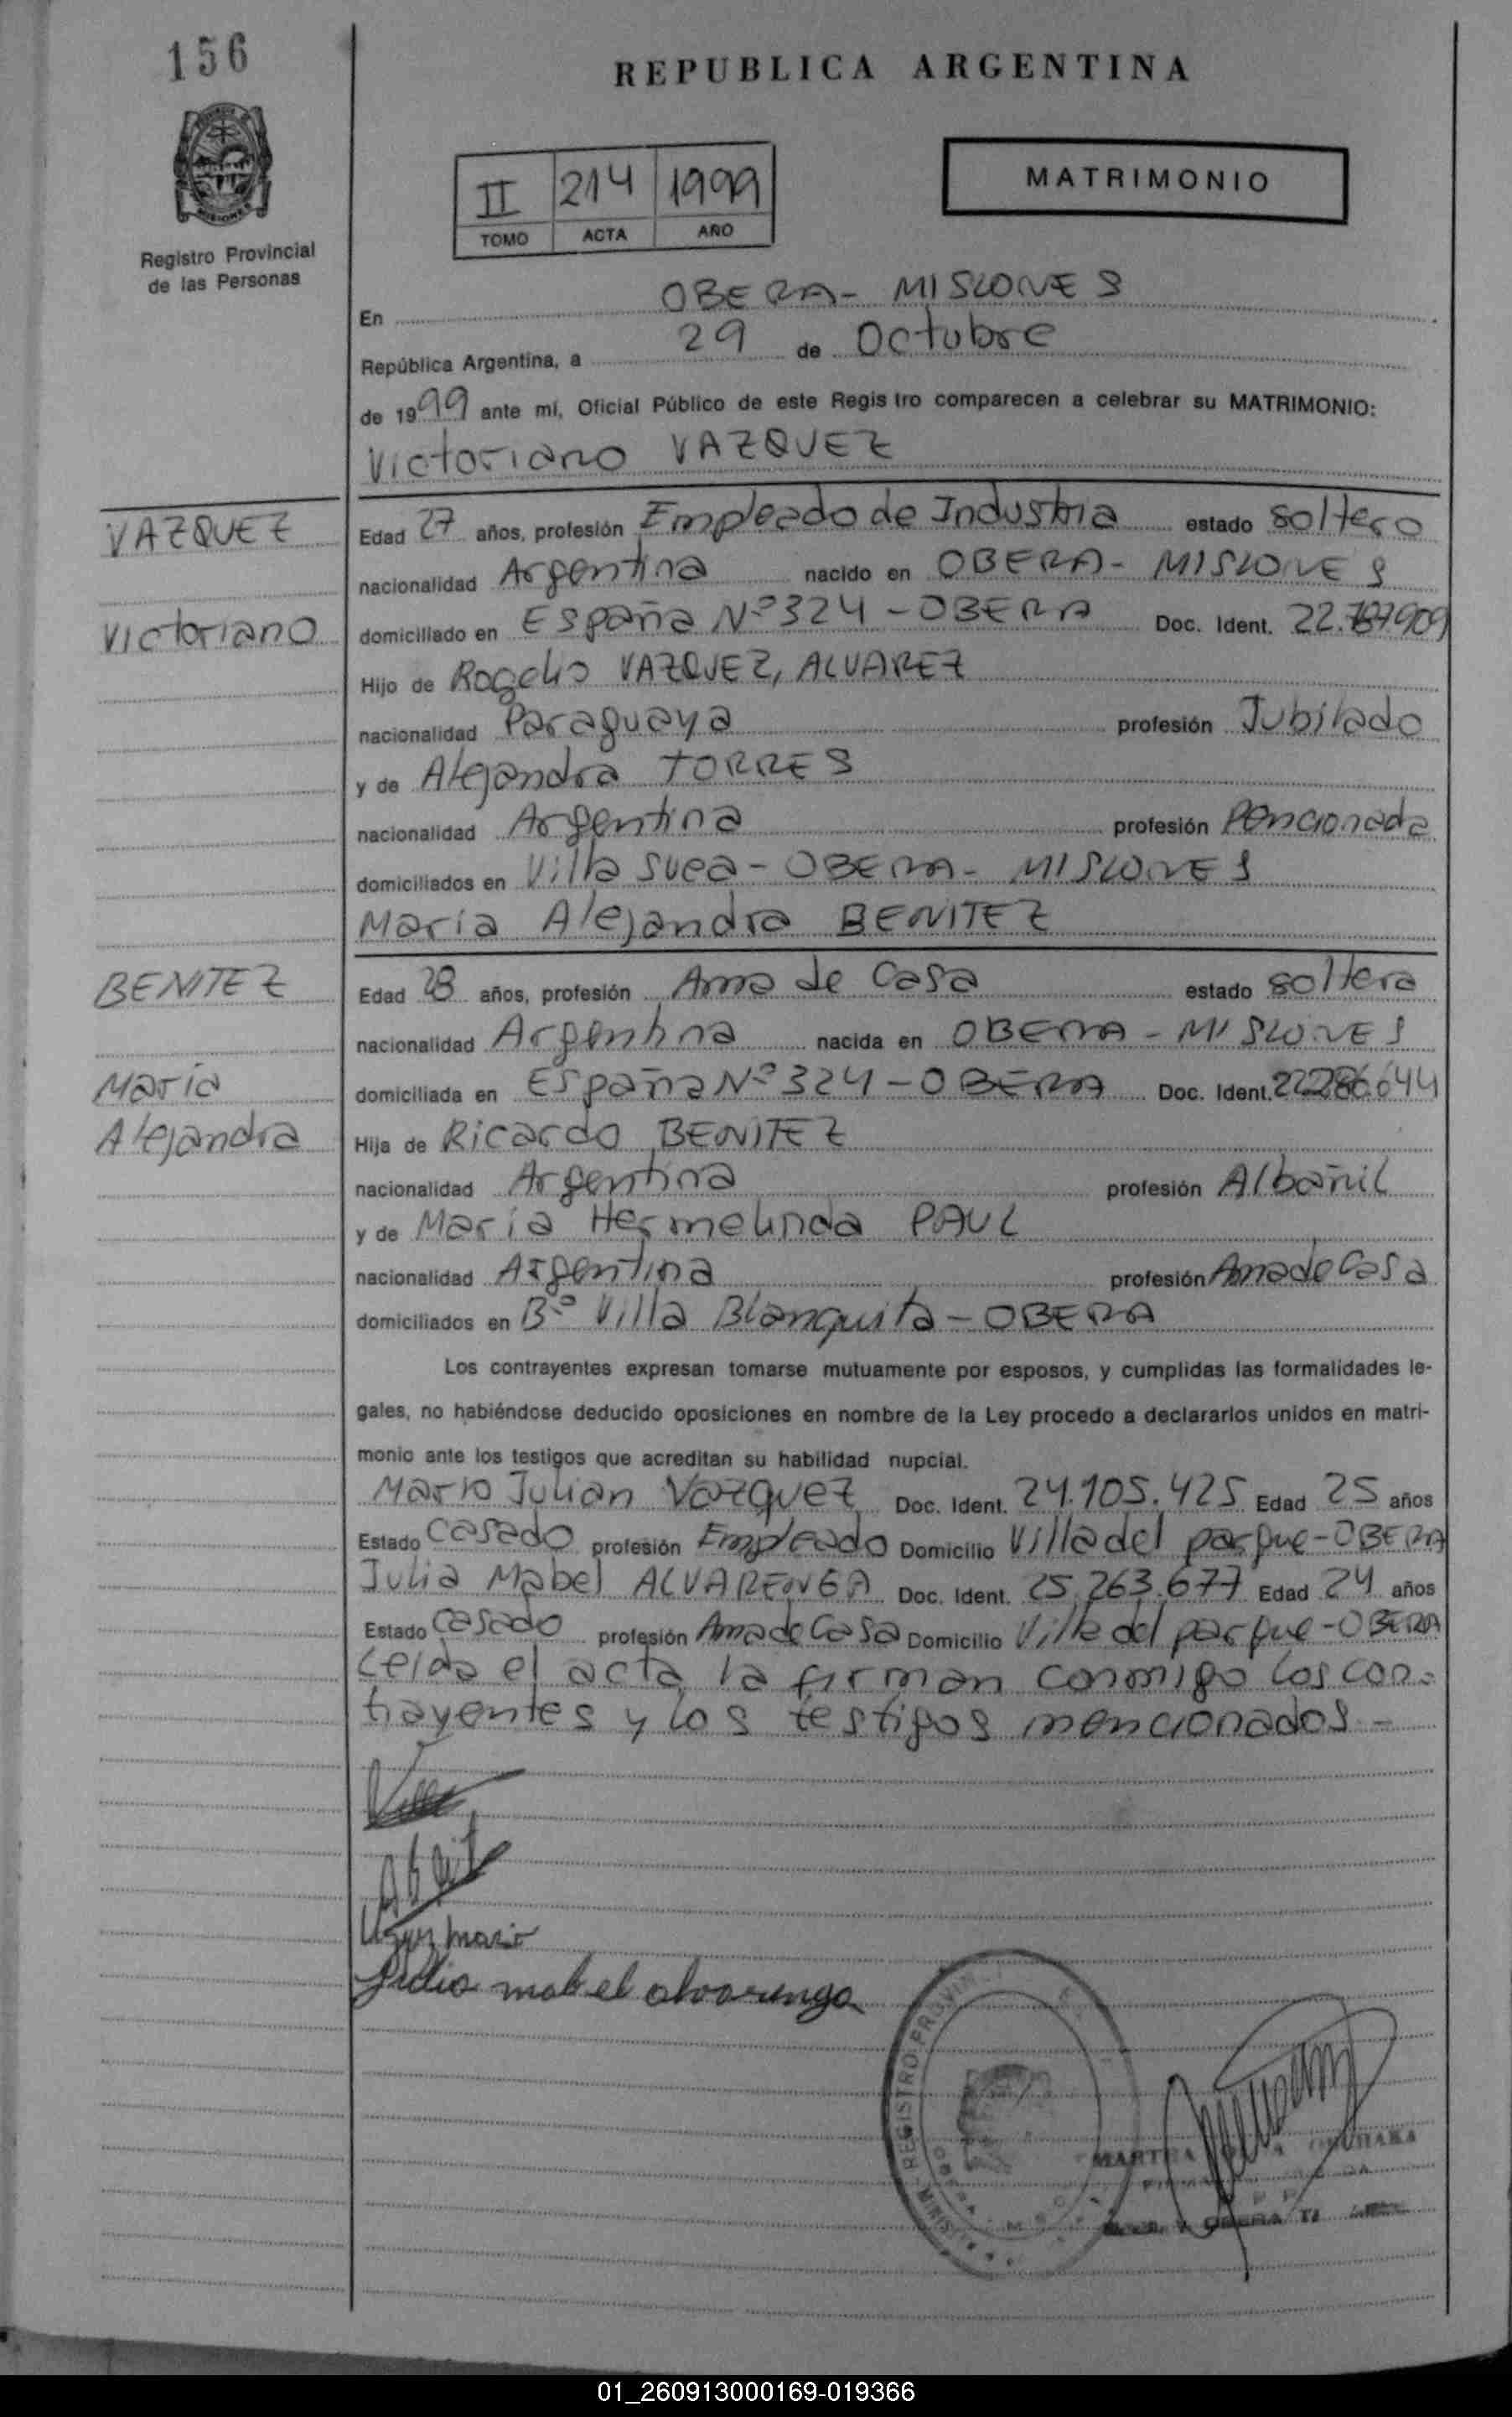 156
REPUBLICA ARGENTINA
MISIONES
Registro Provincial
de las Personas
II 214 1999
TOMO ACTA AÑO
MATRIMONIO
En OBERA - MISIONES
República Argentina, a 29 de Octubre
de 1999 ante mí, Oficial Público de este Registro comparecen a celebrar su MATRIMONIO:
Victoriano VAZQUEZ
VAZQUEZ
Edad 27 años, profesión Empleado de Industria estado soltero
nacionalidad Argentina nacido en OBERA - MISIONES
Victoriano
domiciliado en España Nº 324 - OBERA Doc. Ident.
Hijo de Rogelio VAZQUEZ, ALVAREZ
nacionalidad Paraguaya profesión Jubilado
y de Alejandra TORRES
nacionalidad Argentina profesión Pencionada
domiciliados en Villa Svea - OBERA - MISIONES
Maria Alejandra BENITEZ
BENITEZ
Edad 28 años, profesión Ama de Casa estado soltera
nacionalidad Argentina nacida en OBERA - MISIONES
Maria
domiciliada en España Nº 324 - OBERA Doc. Ident. 22.286.644
Alejandra
Hija de Ricardo BENITEZ
nacionalidad Argentina profesión Albañil
y de Maria Hermelinda PAUL
nacionalidad Argentina profesión Ama de Casa
domiciliados en Bº Villa Blanquita - OBERA
Los contrayentes expresan tomarse mutuamente por esposos, y cumplidas las formalidades le-
gales, no habiéndose deducido oposiciones en nombre de la Ley procedo a declararlos unidos en matri-
monio ante los testigos que acreditan su habilidad nupcial.
Mario Julian Vazquez Doc. Ident. 24.105.425 Edad 25 años
Estado Casado profesión Empleado Domicilio Villa del parque - OBERA
Julia Mabel ALVARENGA Doc. Ident. 25.263.677 Edad 24 años
Estado Casado profesión Ama de Casa Domicilio Villa del parque - OBERA
Leida el acta la firman conmigo los con-
trayentes y los testigos mencionados -
mario
Julia mabel alvarenga
REGISTRO PROVIN
MINIST
MARTHA
OBERA
01_260913000169-019366